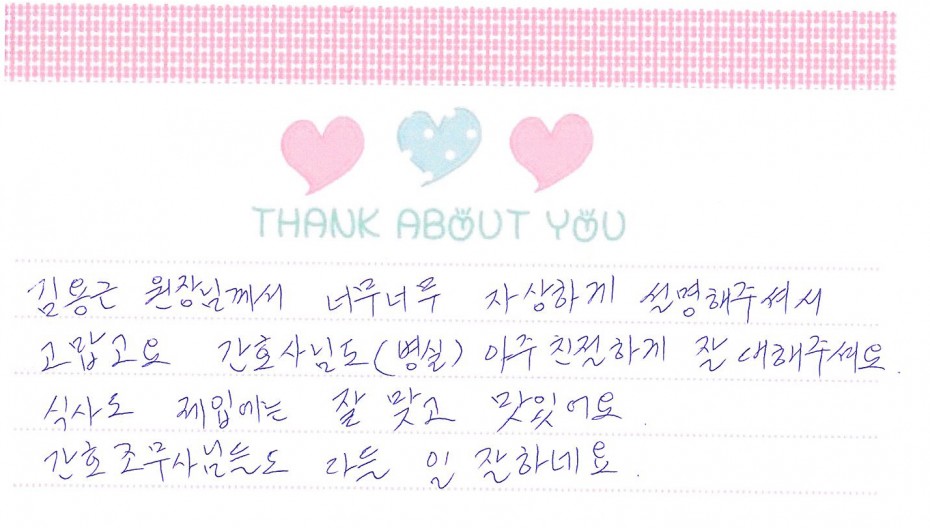 THANK ABOUT YOU
김용근 원장님께서 너무너무 자상하게 설명해주셔서
고맙고요 간호사님도(병실) 아주 친절하게 잘 대해주셔요.
식사도 제입에는 잘 맞고 맛있어요
간호조무사님들도 다들 일 잘하네요.